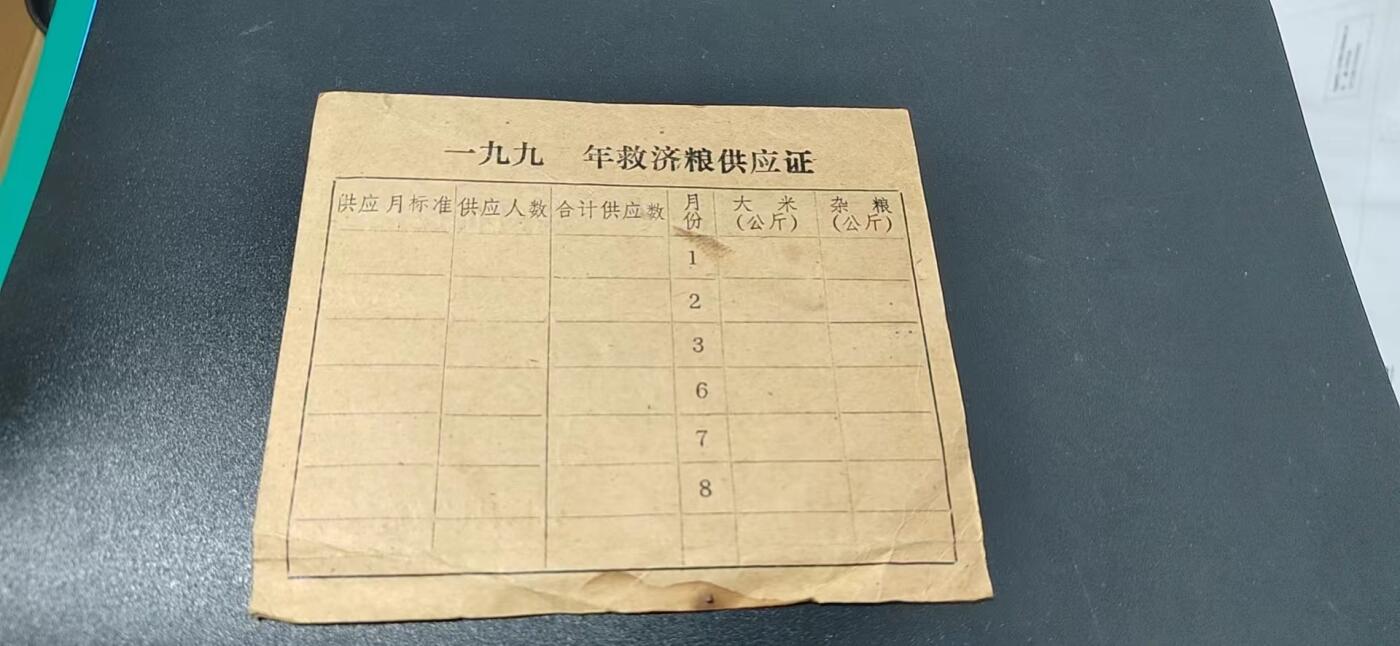 一九九　年救济粮供应证
供应月标准 供应人数 合计供应数 月份 大米(公斤) 杂粮(公斤)
1
2
3
6
7
8